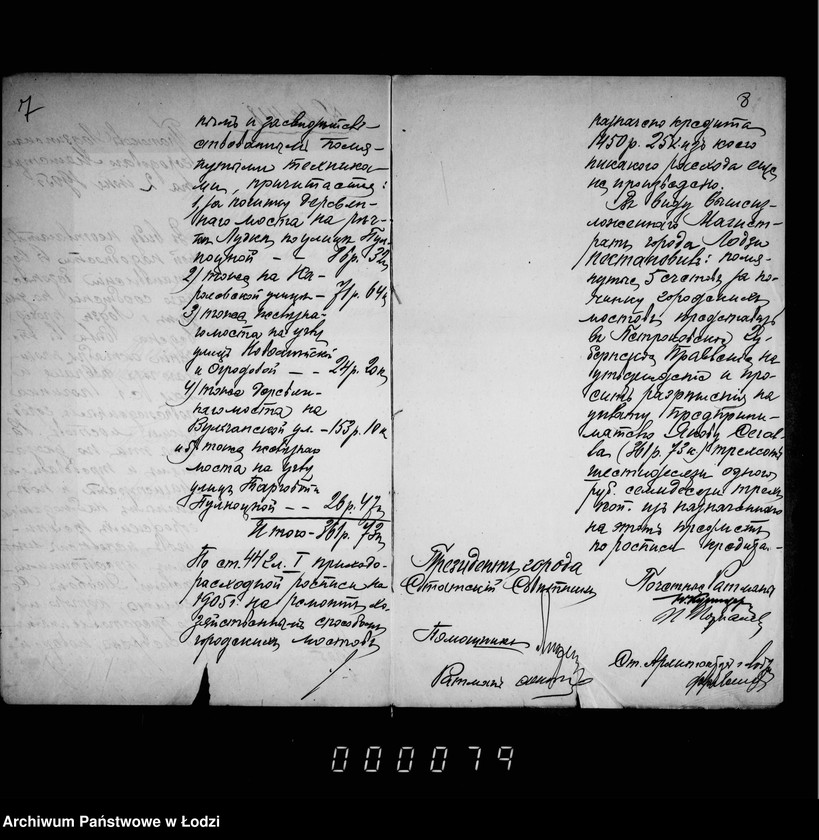 7
нымъ и засвидѣтель-
ствованнымъ помя-
нутыми техника-
ми, причитается:
1, за починку деревян-
наго моста на рѣч-
кѣ Лудкѣ по улицѣ Пул-
ноцной — — 86 р. 32 к
2) тоже на Ка-
роловской улицѣ — 71 р. 64 к
3) тоже
моста на углу
улицъ
и Огродовой — — 24 р. 20 к
4) тоже деревян-
наго моста на
Вульчанской ул. — 153 р. 10 к
и 5) тоже
моста на углу
улицъ
Пулноцной — — 26 р. 47 к
Итого — 361 р. 73 к
По ст. 44/2 л. I приходо-
расходной росписи на
1905 г. на ремонтъ хо-
зяйственнымъ способомъ
городскихъ мостовъ
8
назначено кредита
1450 р. 25 к изъ коего
никакого расхода еще
не произведено.
Въ виду вышеиз-
ложеннаго Магист-
ратъ города Лодзи
постановилъ: помя-
нутые 5 счетовъ за по-
чинку городскихъ
мостовъ представить
въ Петроковское Гу-
бернское Правленіе на
утвержденіе и про-
сить разрѣшенія на
уплату предприни-
мателю Якову
(361 р. 73 к) трехсотъ
шестидесяти одного
руб. семидесяти трехъ
коп. изъ назначеннаго
на этотъ предметъ
по росписи кредита. —
Президентъ города
Статскій Совѣтникъ
Помощникъ
Ратманъ
Почетные Ратманы
000079
Archiwum Państwowe w Łodzi